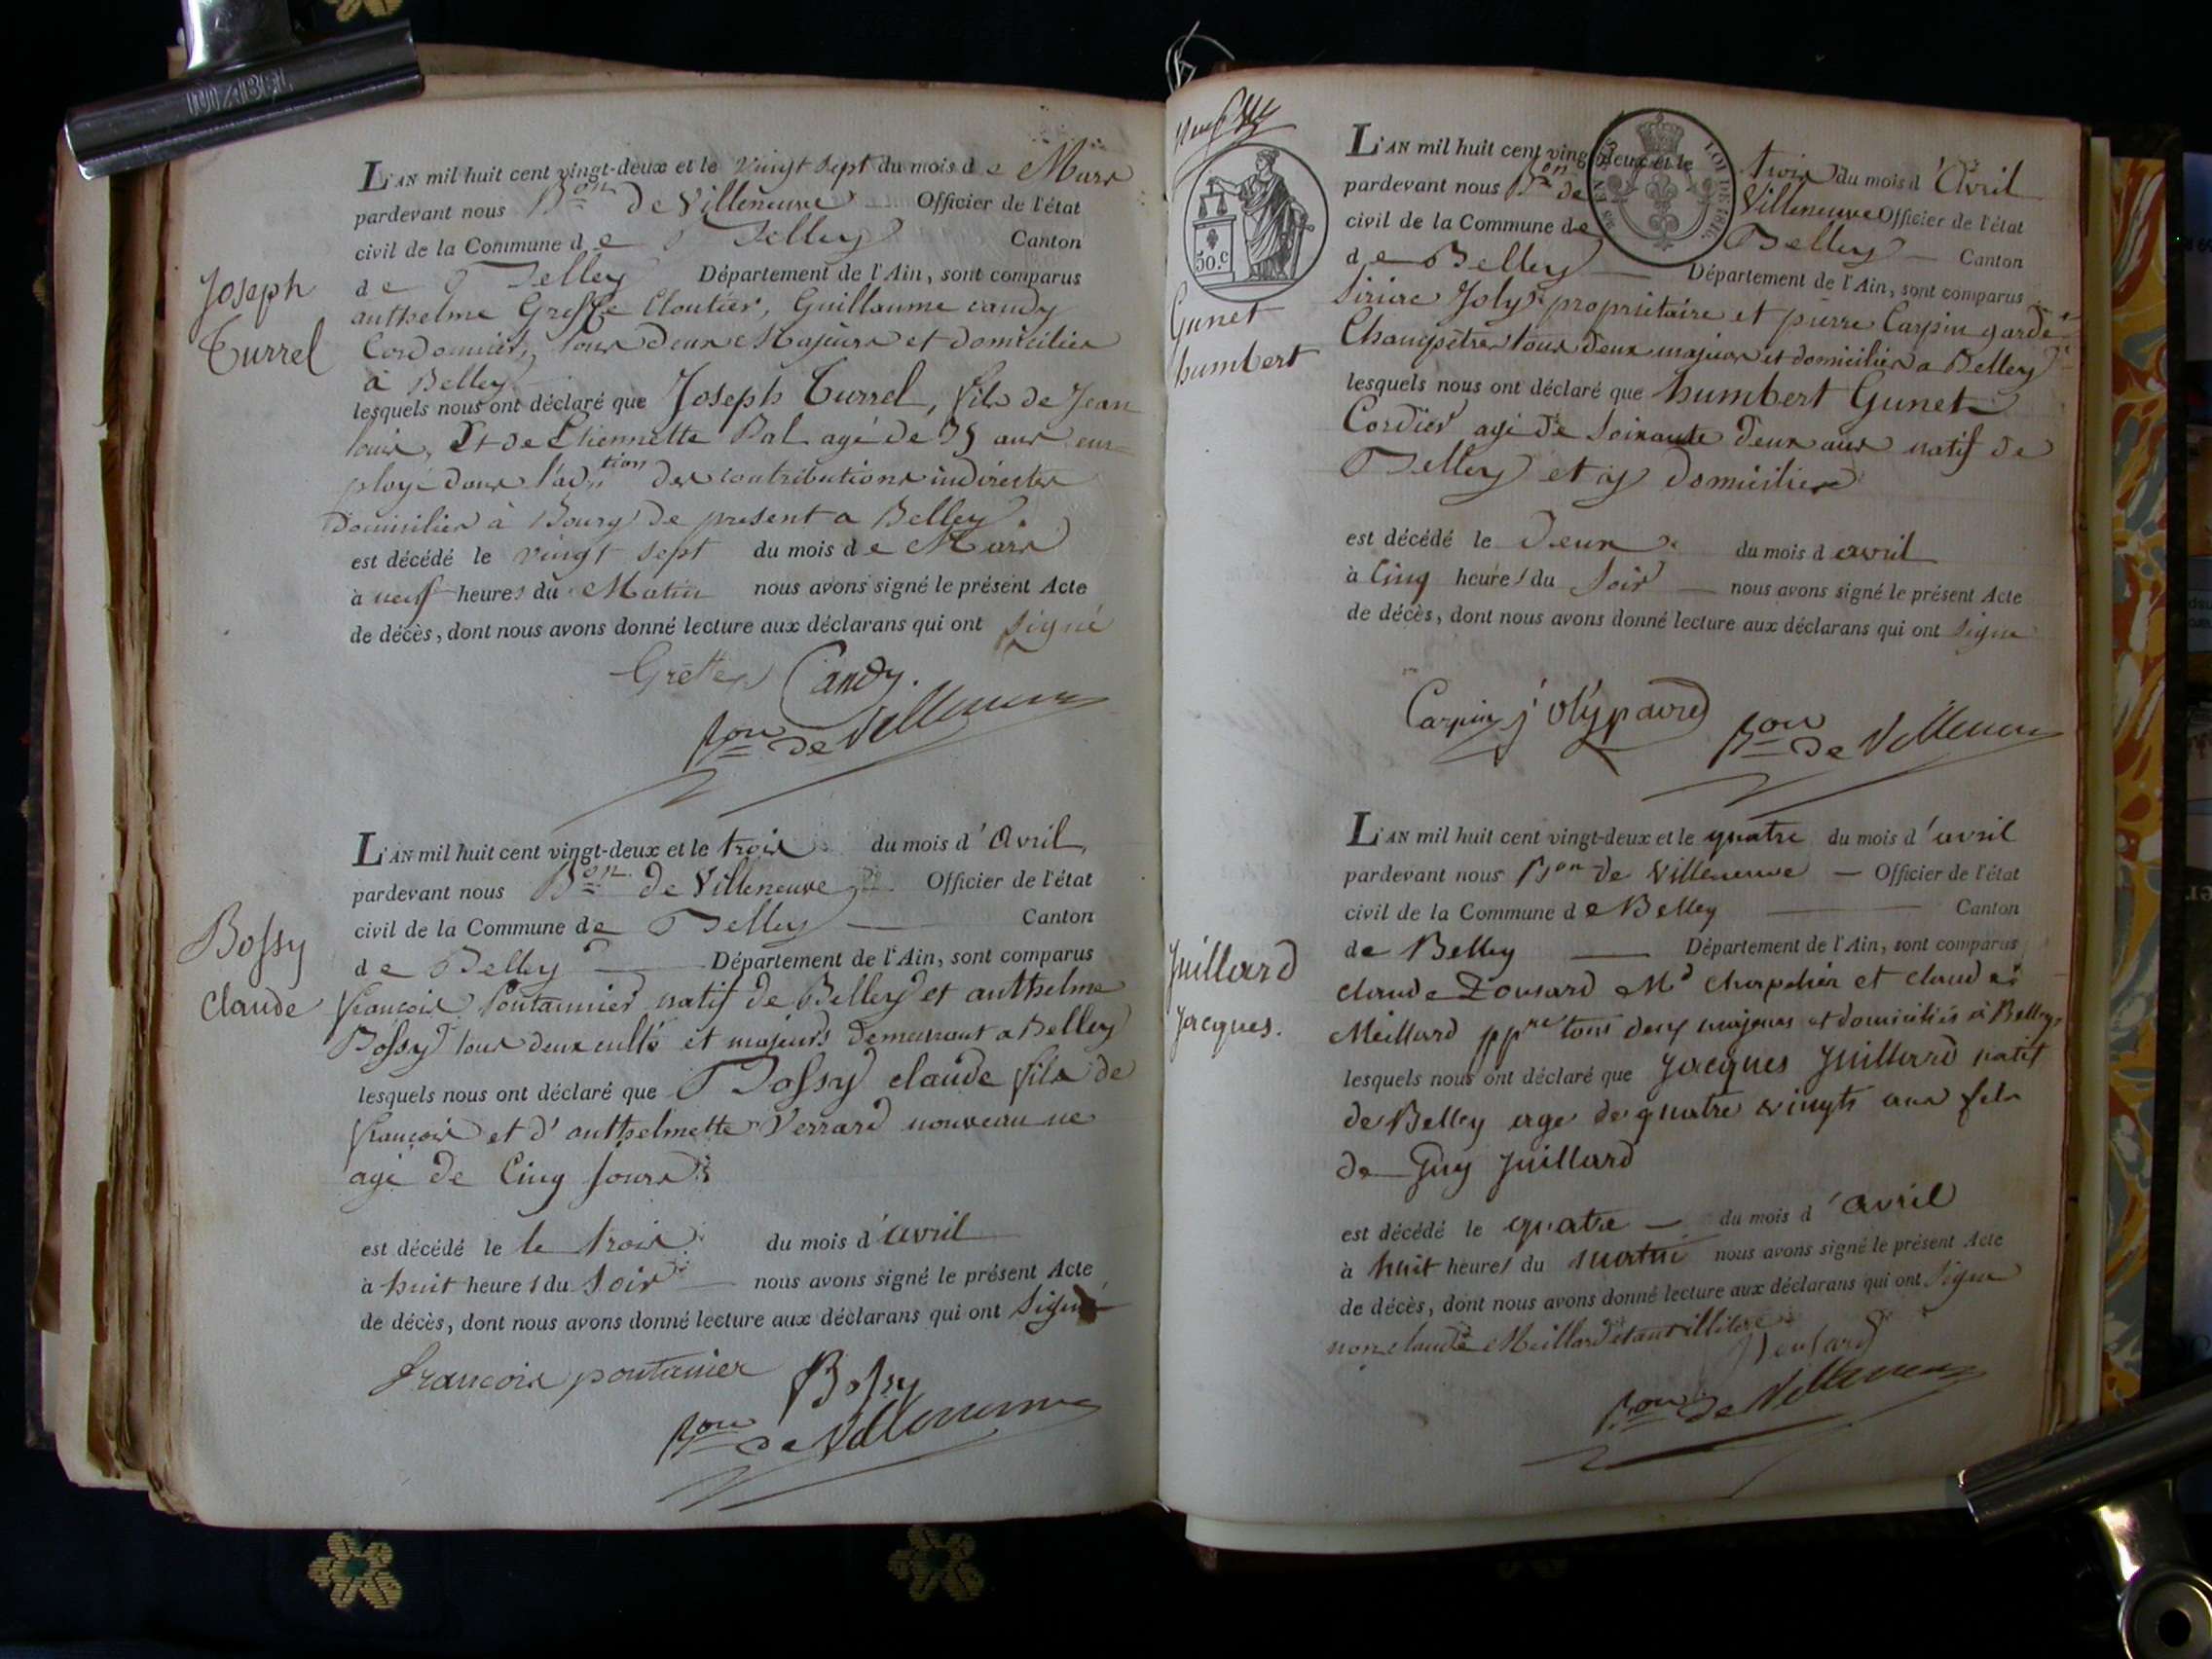 DIABEL
L'AN mil huit cent vingt-deux et le vingt sept du mois de Mars
pardevant nous Bon De Villeneuve Officier de l'état
civil de la Commune de Belley Canton
de Belley Département de l'Ain, sont comparus
anthelme Greffe Cloutier, Guillaume candy
Cordonnier, tous deux Majeurs et domicilies
à Belley
Joseph
Turrel
lesquels nous ont déclaré que Joseph Turrel, fils de Jean
louis, Et de Etiennette Bal agé de 35 ans em-
ployé dans l'adtion des contributions indirectes
Domicilier à Bourg De present a Belley.
est décédé le vingt sept du mois de Mars
à neuf heures du Matin nous avons signé le présent Acte
de décès, dont nous avons donné lecture aux déclarans qui ont signé
Candy.
Bon de Villeneuve
L'AN mil huit cent vingt-deux et le trois du mois d'avril
pardevant nous Bon De Villeneuve Officier de l'état
civil de la Commune de Belley Canton
de Belley Département de l'Ain, sont comparus
Bossy
claude
francois Pontannier natif de Belley et anthelme
Bossy tous deux cult. et majeurs Demeurant a Belley
lesquels nous ont déclaré que Bossy claude fils de
francois et d'anthelmette Verrard nouveau ne
agé De Cinq jours
est décédé le le trois du mois d'avril
à huit heures du Soir nous avons signé le présent Acte
de décès, dont nous avons donné lecture aux déclarans qui ont signé
francois pontanier Bossy
Bon de Villeneuve
50.c
L'AN mil huit cent vingt-deux et le trois du mois d'avril
pardevant nous Bon de Villeneuve Officier de l'état
civil de la Commune de Belley Canton
de Belley Département de l'Ain, sont comparus
LOI DE 1816
Gunet
humbert
Siriac Joly propriétaire et pierre Carpin garde
Champêtre tous deux majeurs et domiciliés a Belley
lesquels nous ont déclaré que humbert Gunet
Cordier agé De soixante Deux ans natif De
Belley et y Domicilier
est décédé le Deux du mois d avril
à Cinq heures du Soir nous avons signé le présent Acte
de décès, dont nous avons donné lecture aux déclarans qui ont signé
Carpin
Bon de Villeneuve
L'AN mil huit cent vingt-deux et le quatre du mois d'avril
pardevant nous Bon de Villeneuve Officier de l'état
civil de la Commune de Belley Canton
de Belley Département de l'Ain, sont comparus
Juillard
Jacques.
claude Dousard Md Chapelier et claude
Meillard ppre tous deux majeurs et domiciliés à Belley
lesquels nous ont déclaré que Jacques Juillard natif
de Belley age de quatre vingts ans fils
de Guy Juillard
est décédé le quatre du mois d'avril
à huit heures du matin nous avons signé le présent Acte
de décès, dont nous avons donné lecture aux déclarans qui ont signé
non claude Meillard étant illitéré
Bon de Villeneuve